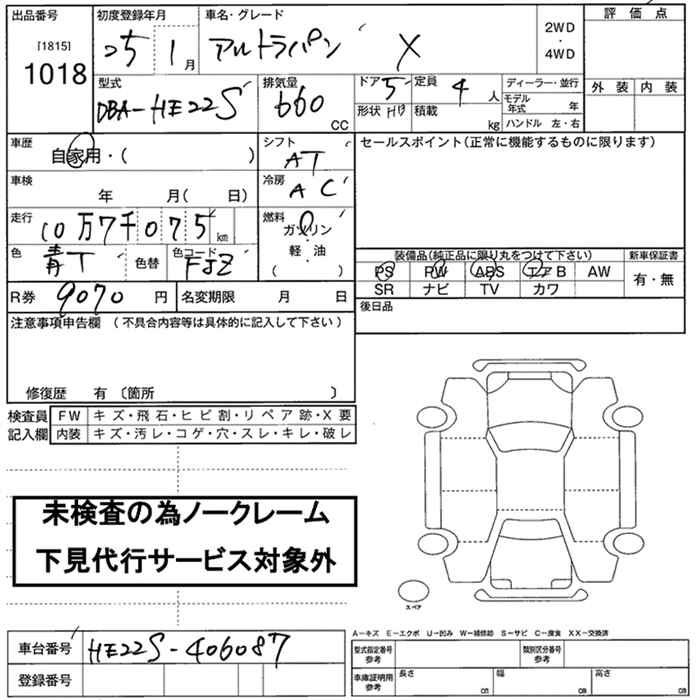 出品番号 初度登録年月 車名・グレード 評価点
[1815] 1018 25 1月 アルトラパン X 2WD・4WD
型式 排気量 ドア 5 定員 4人 ディーラー・並行 外装 内装
DBA-HE22S 660 CC 形状 HB 積載 kg モデル年式 年
ハンドル 左・右
車歴 自家用・( ) シフト AT セールスポイント(正常に機能するものに限ります)
車検 年 月( 日) 冷房 AC
走行 10万7千075km 燃料 ガソリン・軽・油 ( )
色 青T 色替 色コード FJZ
装備品(純正品に限り丸をつけて下さい) 新車保証書
PS PW ABS エアB AW 有・無
SR ナビ TV カワ
R券 9070円 名変期限 月 日 後日品
注意事項申告欄 (不具合内容等は具体的に記入して下さい)
修復歴 有 〔箇所 〕
検査員記入欄 FW キズ・飛石・ヒビ割・リペア跡・X要
内装 キズ・汚レ・コゲ・穴・スレ・キレ・破レ
未検査の為ノークレーム
下見代行サービス対象外
スペア
A−キズ E−エクボ U−凹み W−補修跡 S−サビ C−腐食 XX−交換済
車台番号 HE22S-406087 型式指定番号参考 類別区分番号参考
登録番号 車庫証明用参考 長さ cm 幅 cm 高さ cm